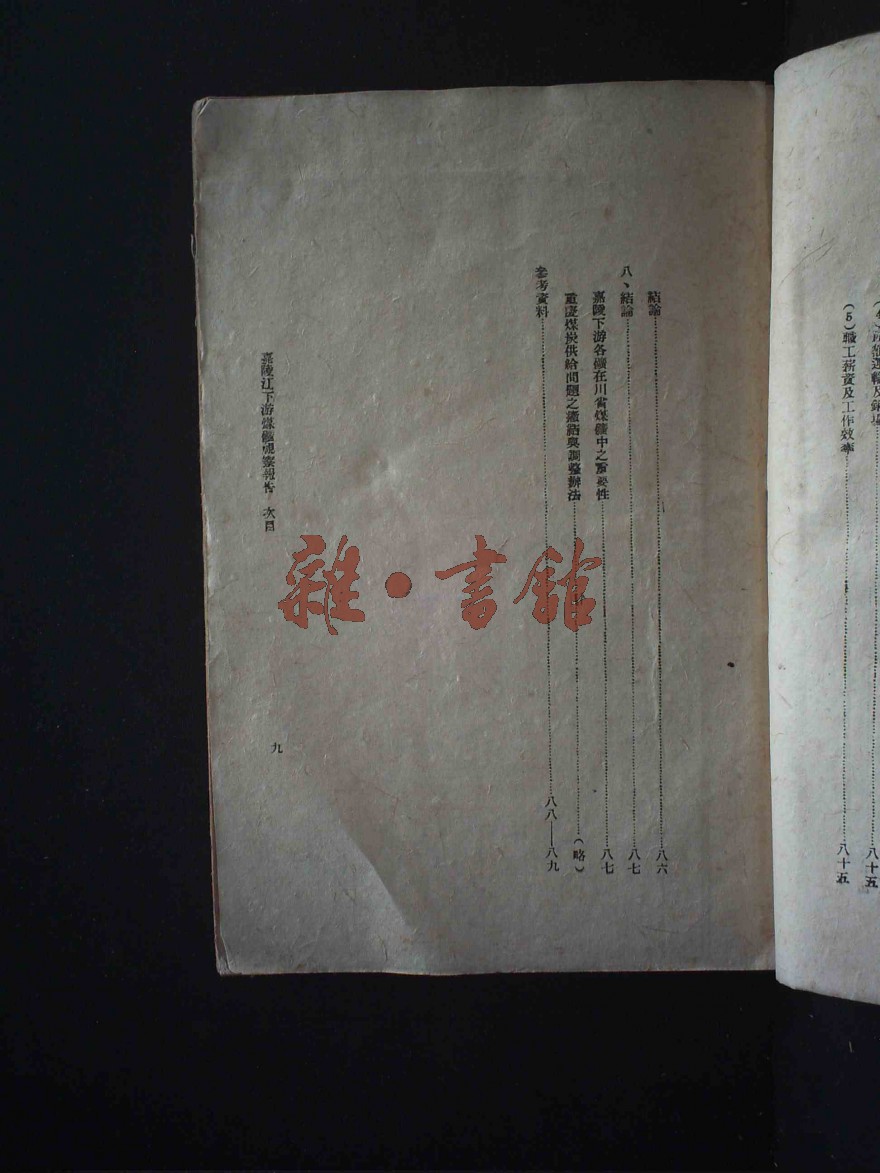 (5)職工薪資及工作效率……八十五
結論……八六
八、結論……八七
嘉陵下游各礦在川省煤礦中之重要性……八七
重慶煤炭供給問題之癥結與調整辦法……(略)
參考資料……八八——八九
嘉陵江下游煤礦視察報告 次目
九
雜·書館